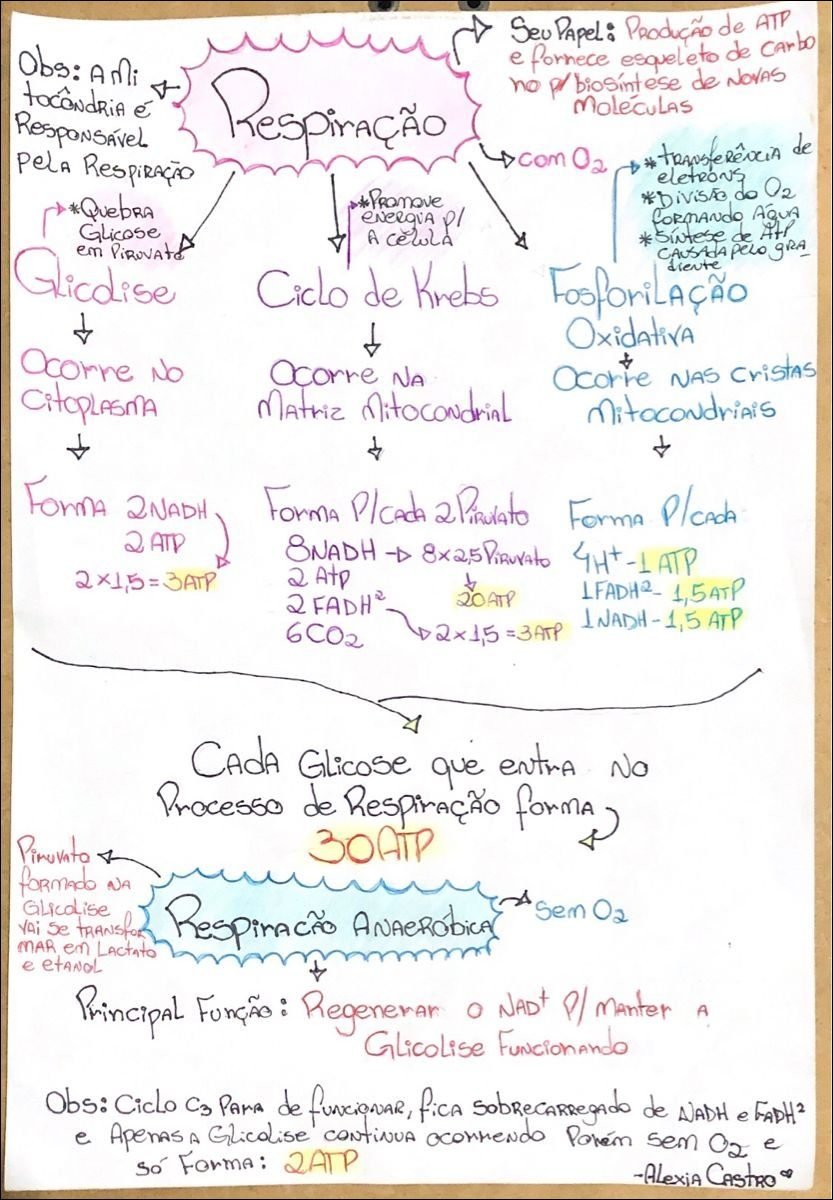 Seu Papel: Produção de ATP
e fornece esqueleto de carbo
no p/ biosíntese de novas
moléculas
Obs: A mi
tocôndria é
Responsável
pela Respiração
Respiração
com O2
*Quebra
Glicose
em Piruvato
*Promove
energia p/
a célula
*transferência de
eletrons
*Divisão do O2
formando água
*Síntese de ATP
causada pelo gra
diente
Glicolise
Ocorre no
Citoplasma
Forma 2NADH
2 ATP
2 x 1,5 = 3ATP
Ciclo de Krebs
Ocorre na
Matriz Mitocondrial
Forma P/cada 2 Piruvato
8NADH → 8 x 2,5 Piruvato
20ATP
2 Atp
2 FADH²
2 x 1,5 = 3ATP
6CO2
Fosforilação
Oxidativa
Ocorre nas cristas
Mitocondriais
Forma P/cada
4H+ - 1 ATP
1FADH² - 1,5 ATP
1NADH - 1,5 ATP
Cada Glicose que entra no
Processo de Respiração forma
30ATP
Piruvato
formado na
Glicolise
vai se transfor
mar em Lactato
e etanol
Respiração Anaeróbica
Sem O2
Principal Função: Regenerar o NAD+ P/ manter a
Glicolise Funcionando
Obs: Ciclo C3 para de funcionar, fica sobrecarregado de NADH e FADH²
e Apenas a Glicolise continua ocorrendo Porém sem O2 e
só Forma: 2ATP
-Alexia Castro